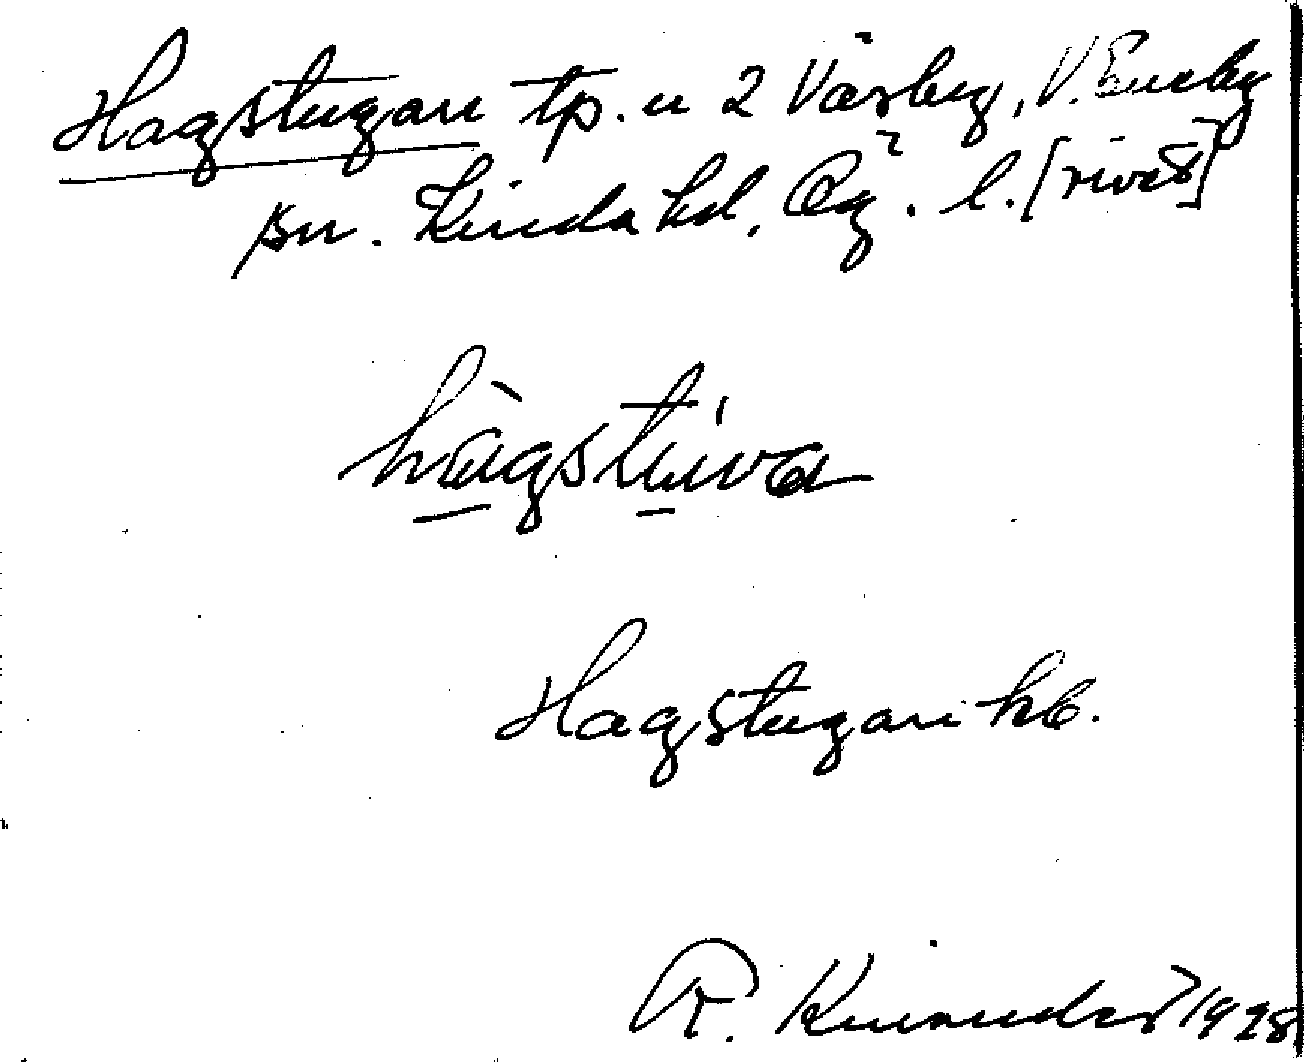 Hagstugan tp. u 2 Vårby, V. Eneby
sn. Kinda hd, Ög. l. [rivet]
hàgstúva
Hagstugan kb.
R. 1928